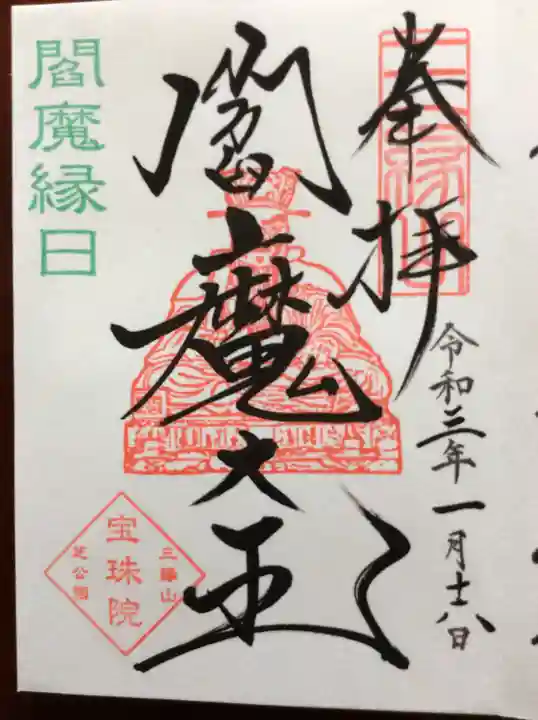 奉拝
令和三年一月十八日
閻魔大王
閻魔縁日
三縁山
宝珠院
芝公園